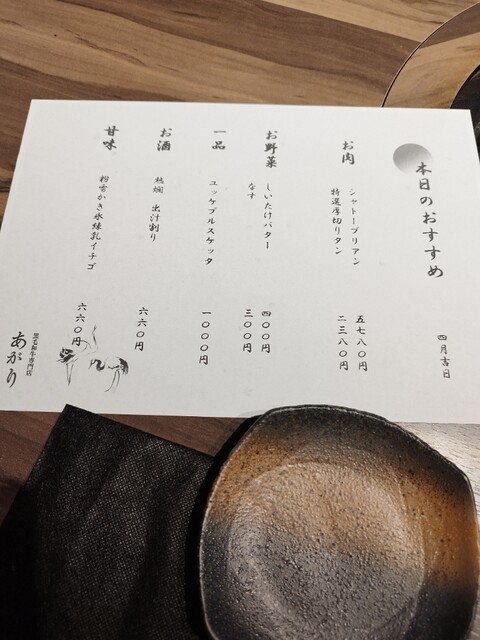 本日のおすすめ
四月吉日
お肉
シャトーブリアン 五七八〇円
特選厚切りタン 二三八〇円
お野菜
しいたけバター 四〇〇円
なす 三〇〇円
一品
ユッケブルスケッタ 一〇〇〇円
お酒
熱燗 出汁割り 六六〇円
甘味
粉雪かき氷練乳イチゴ 六六〇円
黒毛和牛専門店
あがり